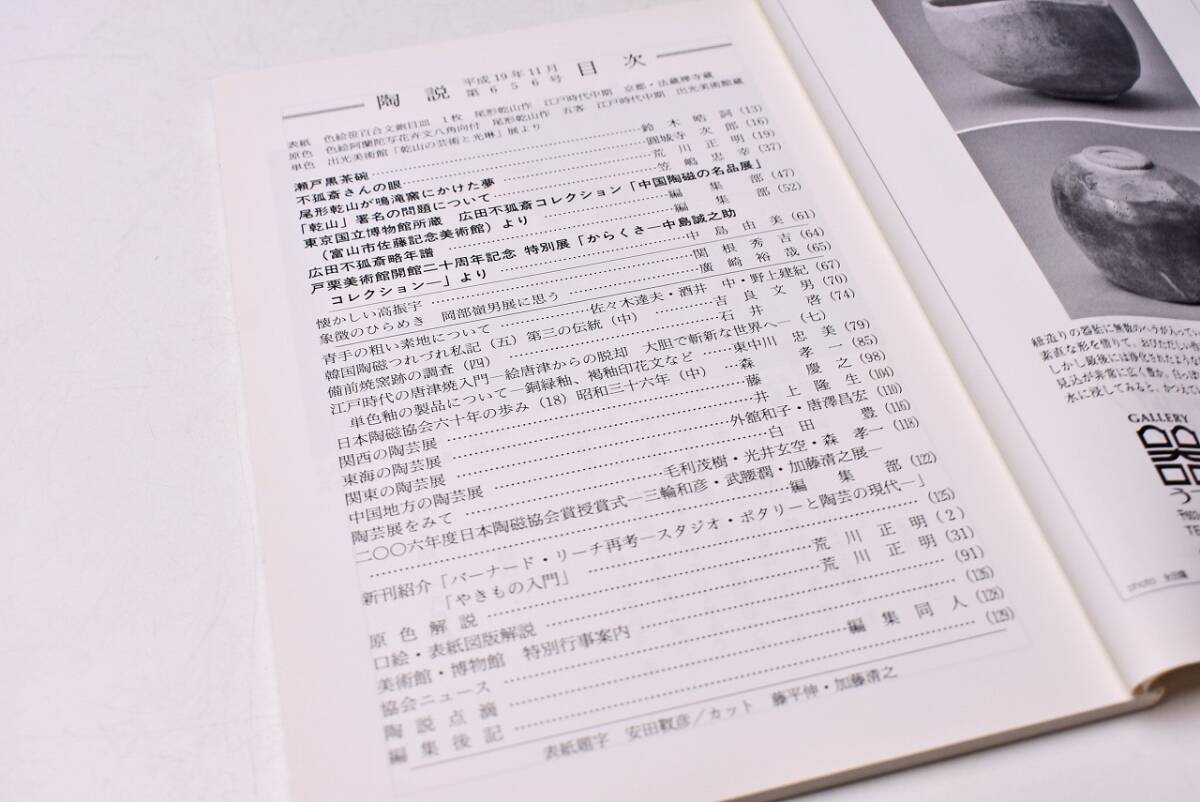 陶説 平成19年11月 第656号 目次
表紙 色絵笹百合文銚目皿 1枚 尾形乾山作 江戸時代中期 京都・法蔵禅寺蔵
原色 色絵阿蘭陀写花卉文八角向付 尾形乾山作 五客 江戸時代中期 出光美術館蔵
単色 出光美術館「乾山の芸術と光琳」展より
瀬戸黒茶碗 鈴木皓詞 (13)
不孤斎さんの眼 圓城寺次郎 (16)
尾形乾山が鳴滝窯にかけた夢 荒川正明 (19)
「乾山」署名の問題について 笠嶋忠幸 (37)
東京国立博物館所蔵 広田不孤斎コレクション「中国陶磁の名品展」
(富山市佐藤記念美術館)より 編集部 (47)
広田不孤斎略年譜 編集部 (52)
戸栗美術館開館二十周年記念 特別展「からくさ―中島誠之助
コレクション―」より 中島由美 (61)
懐かしい高振宇 関根秀吉 (64)
象徴のひらめき 岡部嶺男展に思う 廣崎裕哉 (65)
青手の粗い素地について 佐々木達夫・酒井中・野上建紀 (67)
韓国陶磁つれづれ私記(五)第三の伝統(中) 吉良文男 (70)
備前焼窯跡の調査(四) 石井啓 (74)
江戸時代の唐津焼入門―絵唐津からの脱却 大胆で斬新な世界へ―(七)
単色釉の製品について―銅緑釉、褐釉印花文など 東中川忠美 (79)
日本陶磁協会六十年の歩み(18)昭和三十六年(中) 森孝一 (85)
関西の陶芸展 藤慶之 (98)
東海の陶芸展 井上隆生 (104)
関東の陶芸展 外舘和子・唐澤昌宏 (110)
中国地方の陶芸展 臼田豊 (116)
陶芸展をみて 毛利茂樹・光井玄空・森孝一 (118)
二〇〇六年度日本陶磁協会賞授賞式―三輪和彦・武腰潤・加藤清之展―
編集部 (122)
新刊紹介「バーナード・リーチ再考―スタジオ・ポタリーと陶芸の現代―」
「やきもの入門」 (125)
原色解説 荒川正明 (2)
口絵・表紙図版解説 荒川正明 (31)
美術館・博物館 特別行事案内 (91)
協会ニュース (126)
陶説点滴 編集同人 (128)
編集後記 (129)
表紙題字 安田靫彦/カット 藤平伸・加藤清之
紐造りの器胎に無数のヘラが入ってい
素直な形を借りて、おびただしい
しかし最後には浄化されたような
見込が非常に広く豊か。白っぽ
水に浸してみると、かつえて
GALLERY
う